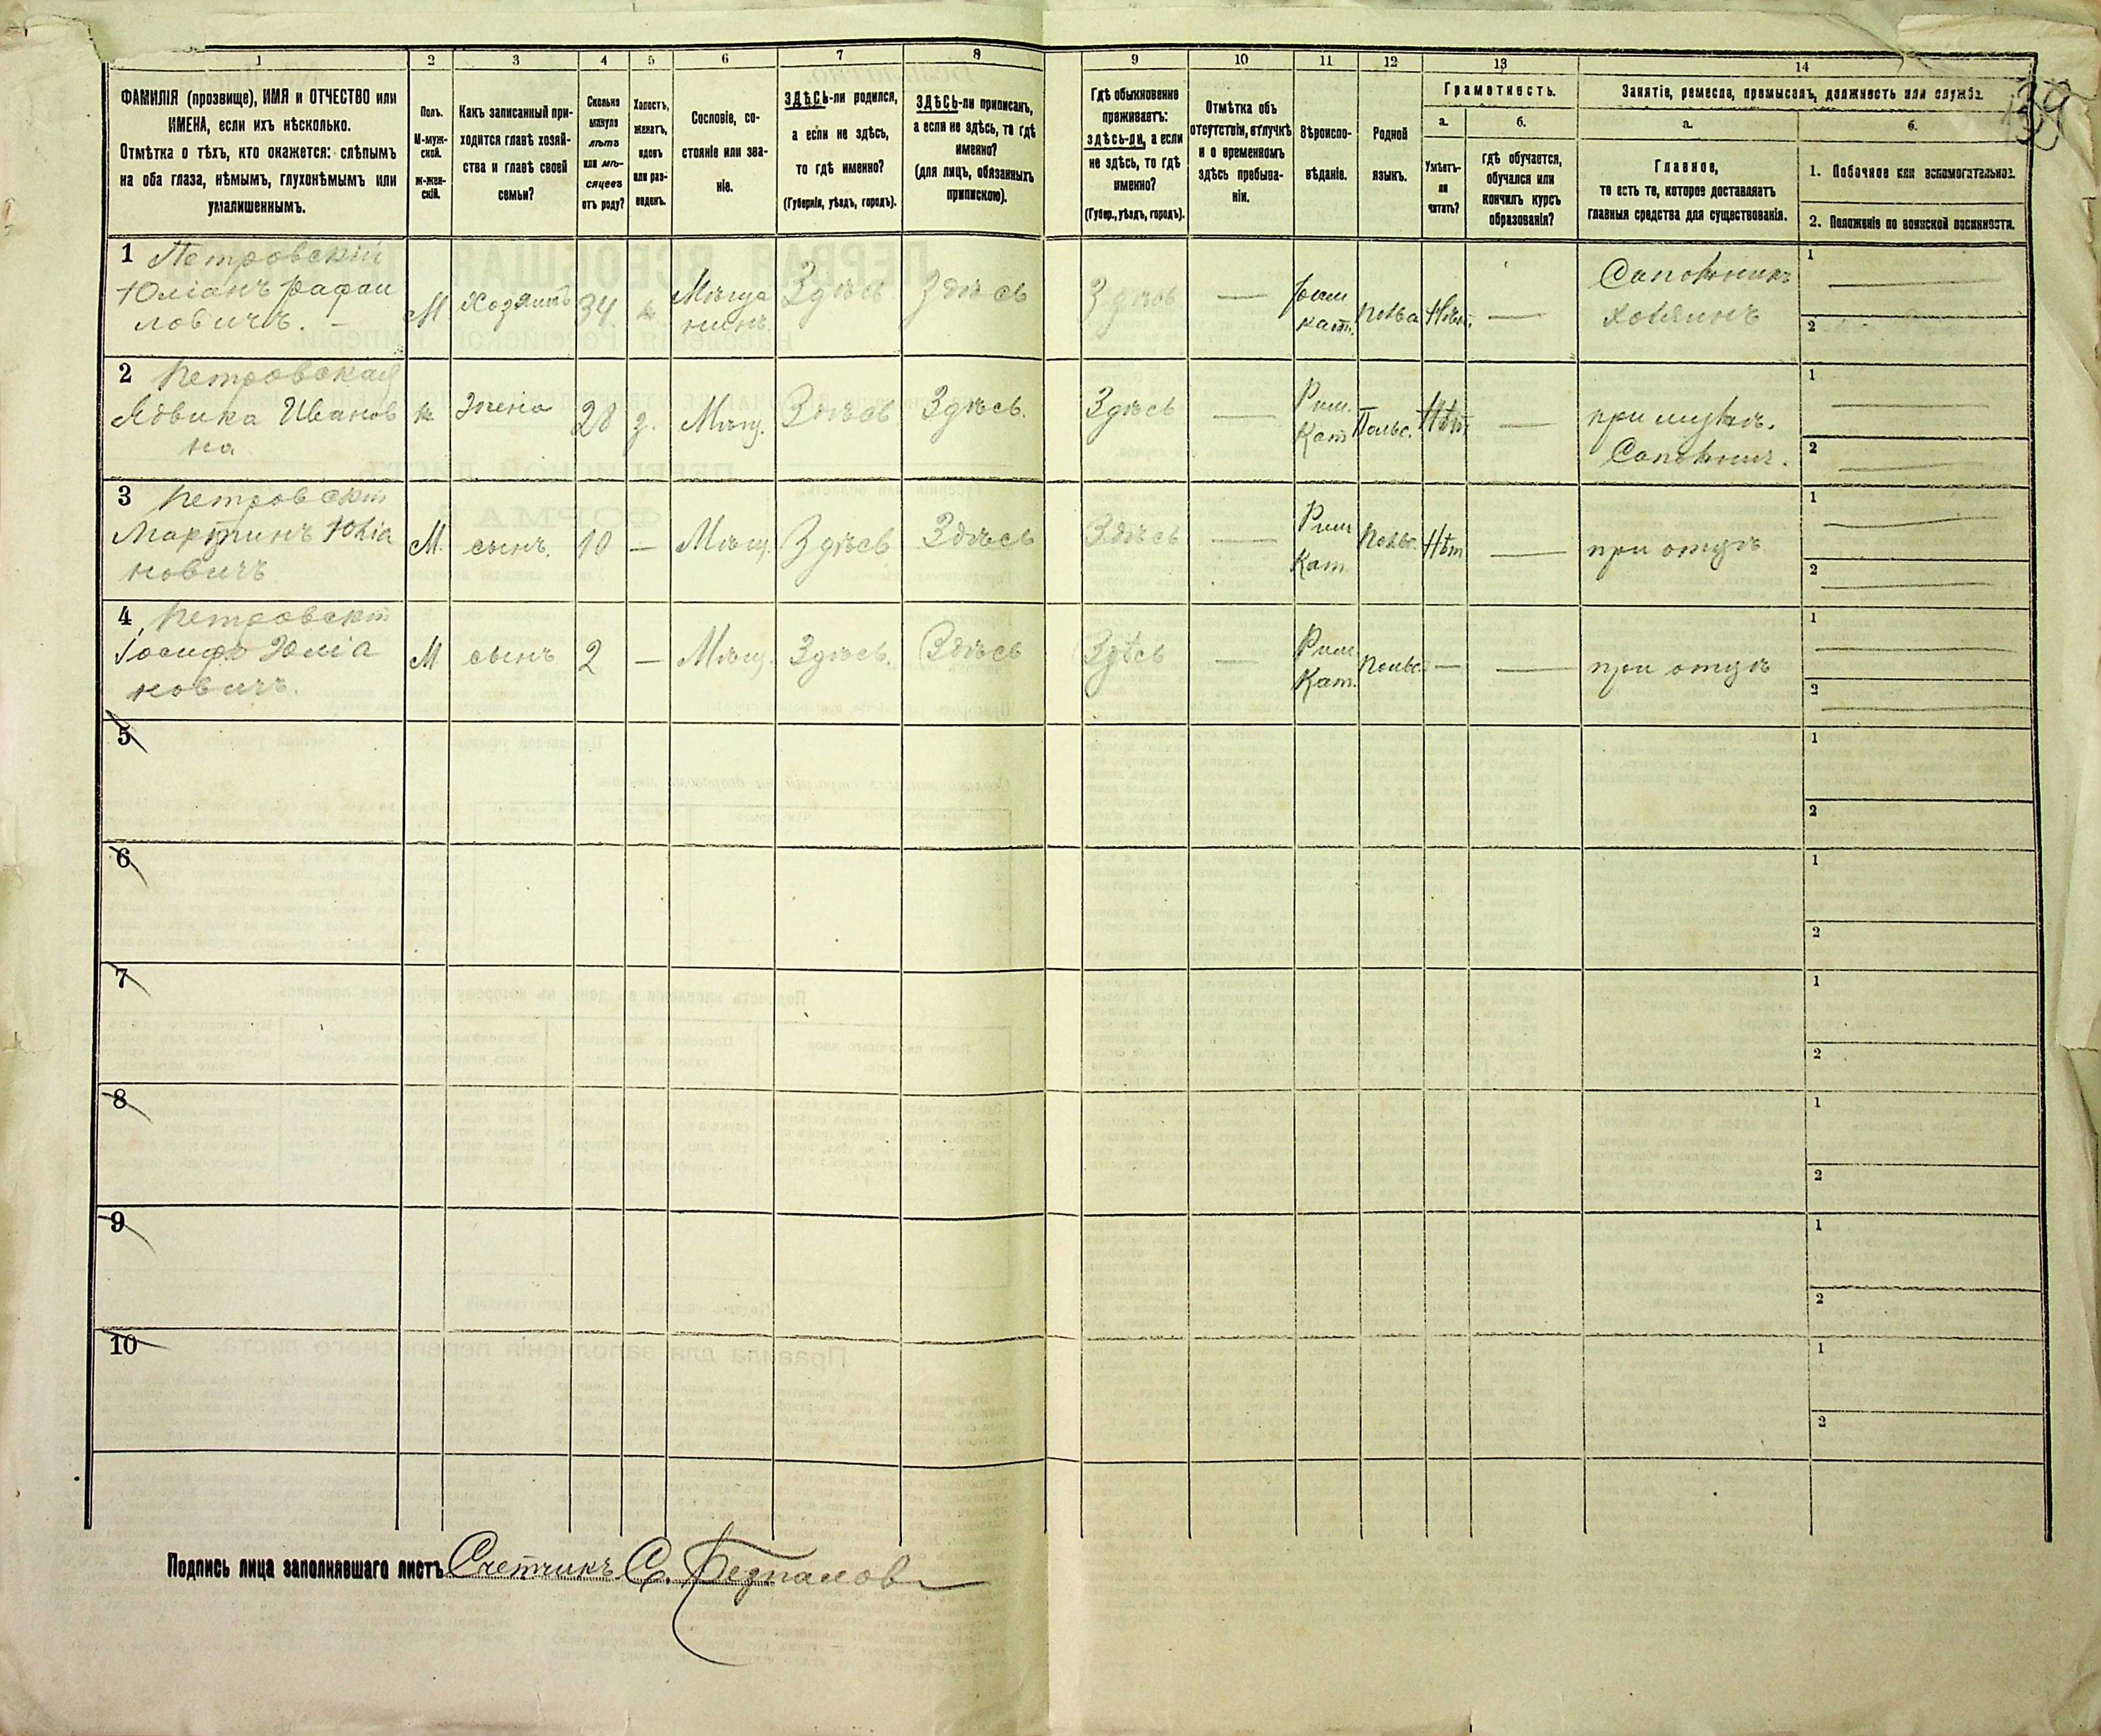 1 2 3 4 5 6 7 8 9 10 11 12 13 14
39
ФАМИЛІЯ (прозвище), ИМЯ и ОТЧЕСТВО или
ИМЕНА, если ихъ нѣсколько.
Отмѣтка о тѣхъ, кто окажется: слѣпымъ
на оба глаза, нѣмымъ, глухонѣмымъ или
умалишеннымъ.
Полъ.
М-муж-
ской.
ж-жен-
скій.
Какъ записанный при-
ходится главѣ хозяй-
ства и главѣ своей
семьи?
Сколько
минуло
лѣтъ
или мѣ-
сяцевъ
отъ роду?
Холостъ,
женатъ,
вдовъ
или раз-
веденъ.
Сословіе, со-
стояніе или зва-
ніе.
ЗДѢСЬ-ли родился,
а если не здѣсь,
то гдѣ именно?
(Губернія, уѣздъ, городъ).
ЗДѢСЬ-ли приписанъ,
а если не здѣсь, то гдѣ
именно?
(для лицъ, обязанныхъ
припискою).
Гдѣ обыкновенно
проживаетъ:
здѣсь-ли, а если
не здѣсь, то гдѣ
именно?
(Губер., уѣздъ, городъ).
Отмѣтка объ
отсутствіи, отлучкѣ
и о временномъ
здѣсь пребыва-
ніи.
Вѣроиспо-
вѣданіе.
Родной
языкъ.
Грамотность.
а.
Умѣетъ-
ли
читать?
б.
гдѣ обучается,
обучался или
кончилъ курсъ
образованія?
Занятіе, ремесло, промыселъ, должность или служба.
а.
Главное,
то есть то, которое доставляетъ
главныя средства для существованія.
б.
1. Побочное или вспомогательное.
2. Положеніе по воинской повинности.
1 Петровскій
Юліанъ Рафаи
ловичъ.
М Хозяинъ 34 ж Мѣща
нинъ. Здѣсь Здѣсь Здѣсь — Рим
кат. Польс Нѣт. — Сапожникъ
хозяинъ
1 —
2
2 Петровская
Ядвика Иванов
на
ж Жена 28 з. Мѣщ. Здѣсь Здѣсь. Здѣсь — Рим.
Кат Польс. Нѣт — при мужѣ.
Сапожнич.
1 —
2 —
3 Петровскій
Мартинъ Юліа
новичъ
М. сынъ. 10 — Мѣщ. Здѣсь Здѣсь Здѣсь — Рим
Кат. Польс. Нѣт — при отцѣ
1 —
2 —
4 Петровскій
Іосифъ Юліа
новичъ.
М сынъ 2 — Мѣщ. Здѣсь. Здѣсь Здѣсь — Рим
Кат. Польс. — — при отцѣ
1 —
2 —
5
1
2
6
1
2
7
1
2
8
1
2
9
1
2
10
1
2
Подпись лица заполнявшаго листъ Счетчикъ С.